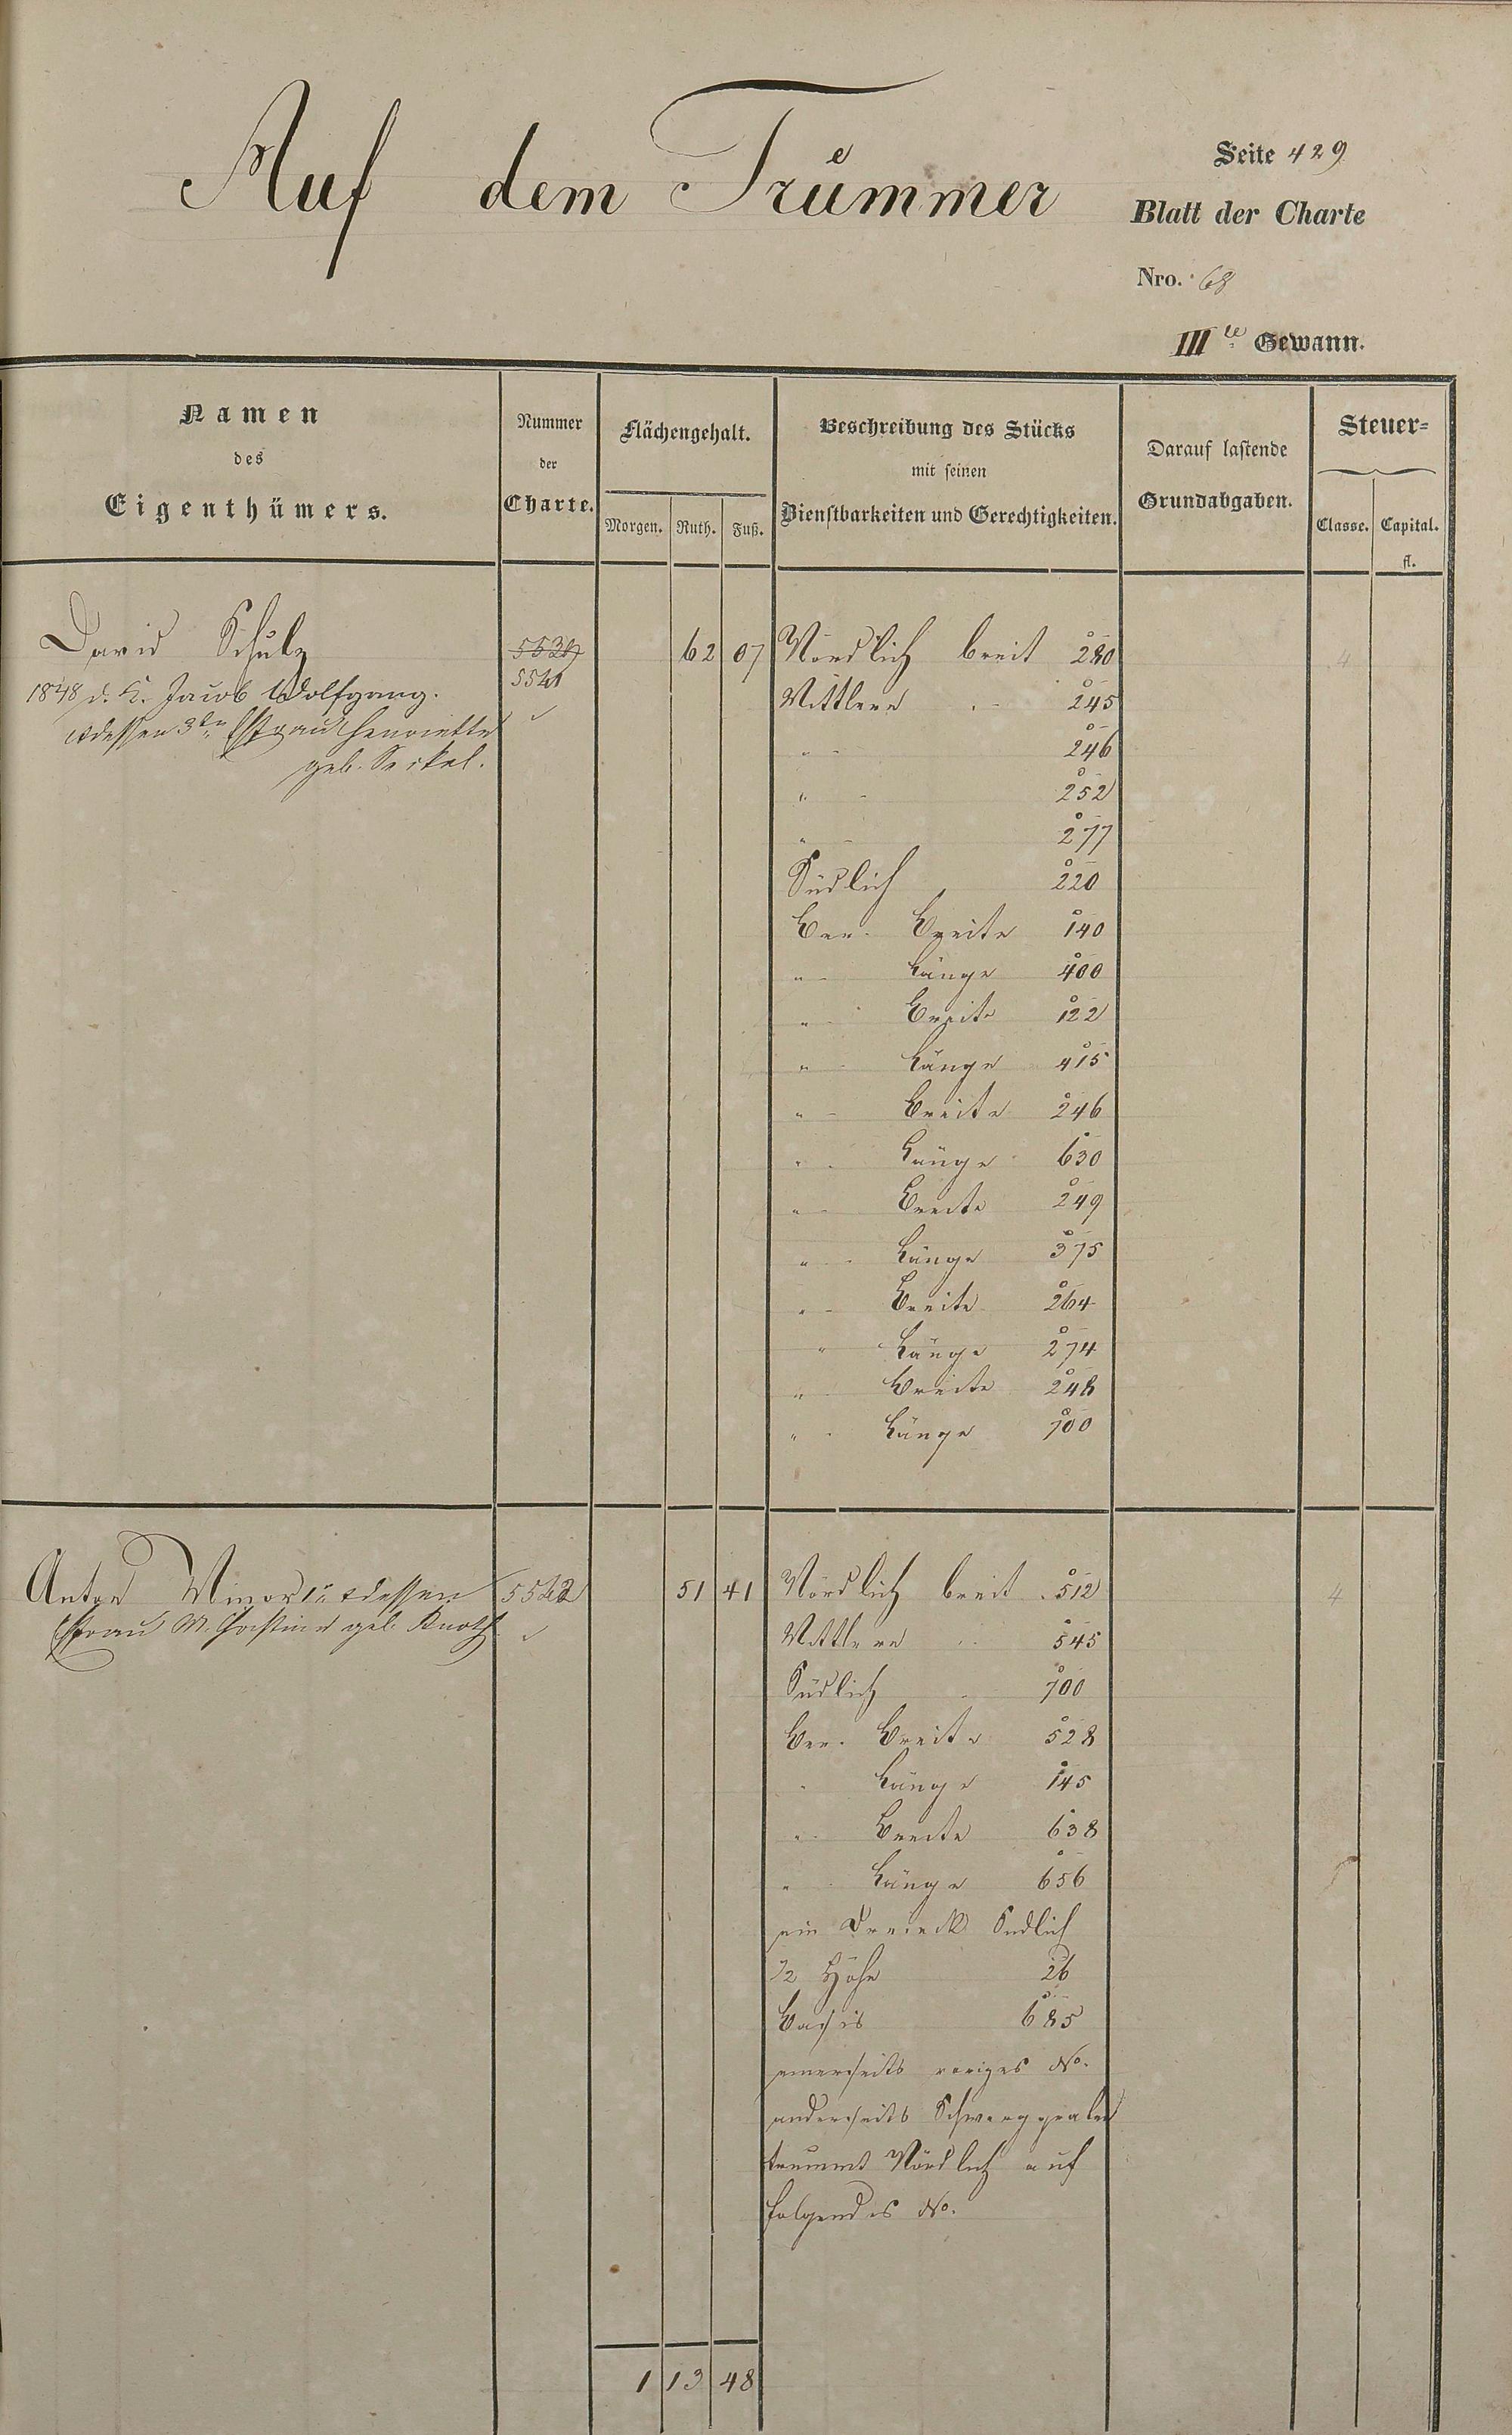 Auf dem Trümmer
Seite 429
Blatt der Charte
Nro. 68
IIIte Gewann.
Namen
des
Eigenthümers.
Nummer
der
Charte.
Flächengehalt.
Morgen. Ruth. Fuß.
Beschreibung des Stücks
mit seinen
Dienstbarkeiten und Gerechtigkeiten.
Darauf lastende
Grundabgaben.
Steuer=
Classe. Capital.
fl.
David Schulz 62 07 Nördlich breit 280 4
1848 d. K. Jacob Wolfgang. 5541 Mittlere 245
u dessen 3te Ehefrau Henriette 246
geb. 252
" 277
Südlich 220
Ber. Breite 140
" Länge 400
" Breite 122
" Länge 415
" Breite 246
" Länge 630
" Breite 249
" Länge 375
" Breite 264
" Länge 274
" Breite 248
" Länge 700
Anton Minor u dessen 5542 51 41 Nördlich breit 512 4
Ehefrau M. geb. Knoth Mittlere 545
Südlich 700
Ber. Breite 528
" Länge 145
" Breite 638
" Länge 656
ein Dreieck Südlich
1/2 Höhe 26
Basis 685
einerseits voriges No.
anderseits
Nördlich auf
folgendes No.
1 13 48